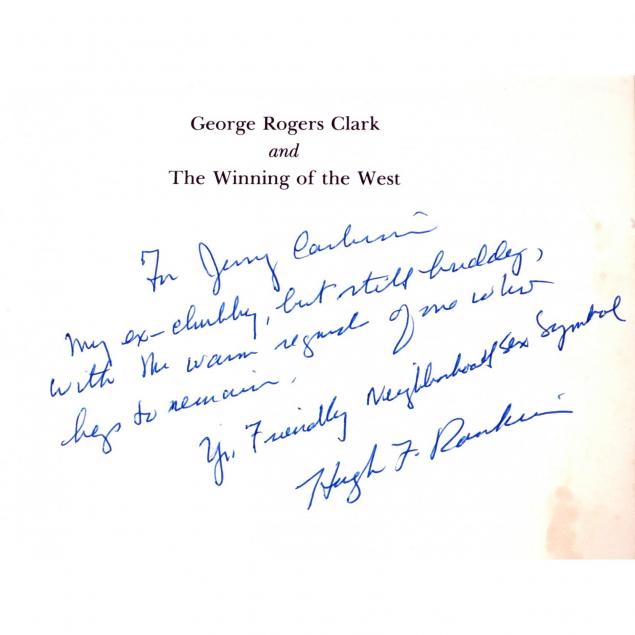 George Rogers Clark
and
The Winning of the West
For Jerry Cashion
My ex-chubby, but still buddy,
with the warm regard of one who
begs to remain,
Yr. Friendly Neighborhood Sex Symbol
Hugh F. Rankin